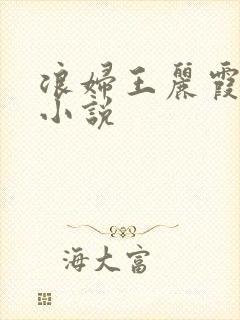 浪婦王麗霞
小說
海大富